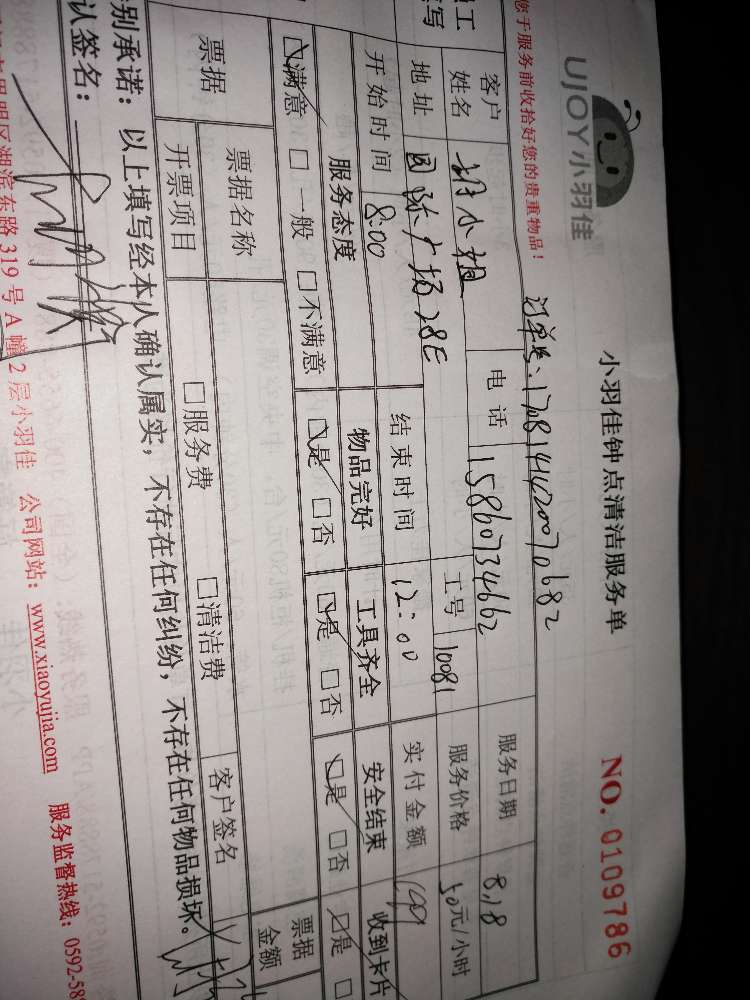 UJOY小羽佳
小羽佳钟点清洁服务单
NO. 0109786
您于服务前收拾好您的贵重物品！
订单号：
客户姓名 胡小姐 电话 15860734662 服务日期 8.18
地址 国际广场28E 工号 10081 服务价格 50元/小时
开始时间 8:00 结束时间 12:00 实付金额 199
服务态度 物品完好 工具齐全 安全结束 收到卡片
☑满意 □一般 □不满意 ☑是 □否 ☑是 □否 ☑是 □否 ☑是 □
票据 票据名称 票据金额
开票项目 □服务费 □清洁费 客户签名
别承诺：以上填写经本人确认属实，不存在任何纠纷，不存在任何物品损坏。
认签名：
明区湖滨东路319号A幢2层小羽佳 公司网站：www.xiaoyujia.com 服务监督热线：0592-58